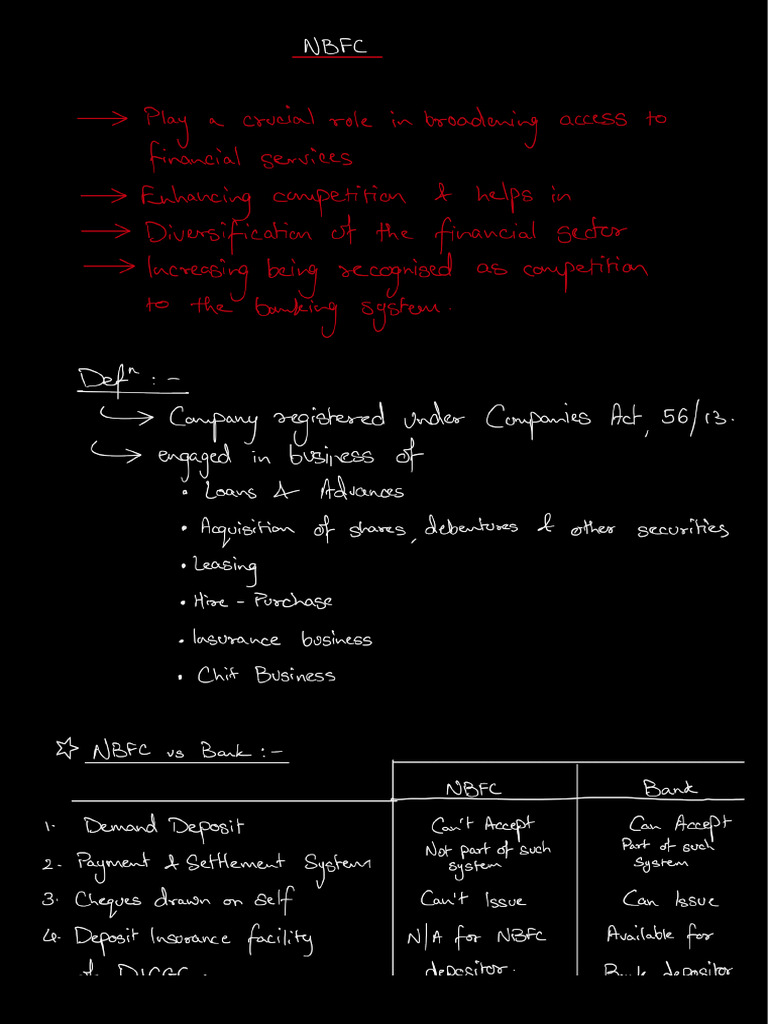 NBFC
→ Play a crucial role in broadening access to
financial services
→ Enhancing competition & helps in
→ Diversification of the financial sector
→ Increasing being recognised as competition
to the banking system.
Defⁿ : -
↪ Company registered under Companies Act, 56/13.
↪ engaged in business of
• Loans & Advances
• Acquisition of shares, debentures & other securities
• Leasing
• Hire - Purchase
• Insurance business
• Chit Business
☆ NBFC vs Bank : -
NBFC Bank
1. Demand Deposit Can't Accept Can Accept
2. Payment & Settlement System Not part of such system Part of such system
3. Cheques drawn on self Can't Issue Can Issue
4. Deposit Insurance facility N/A for NBFC Available for
of DICGC. depositor. Bank depositor